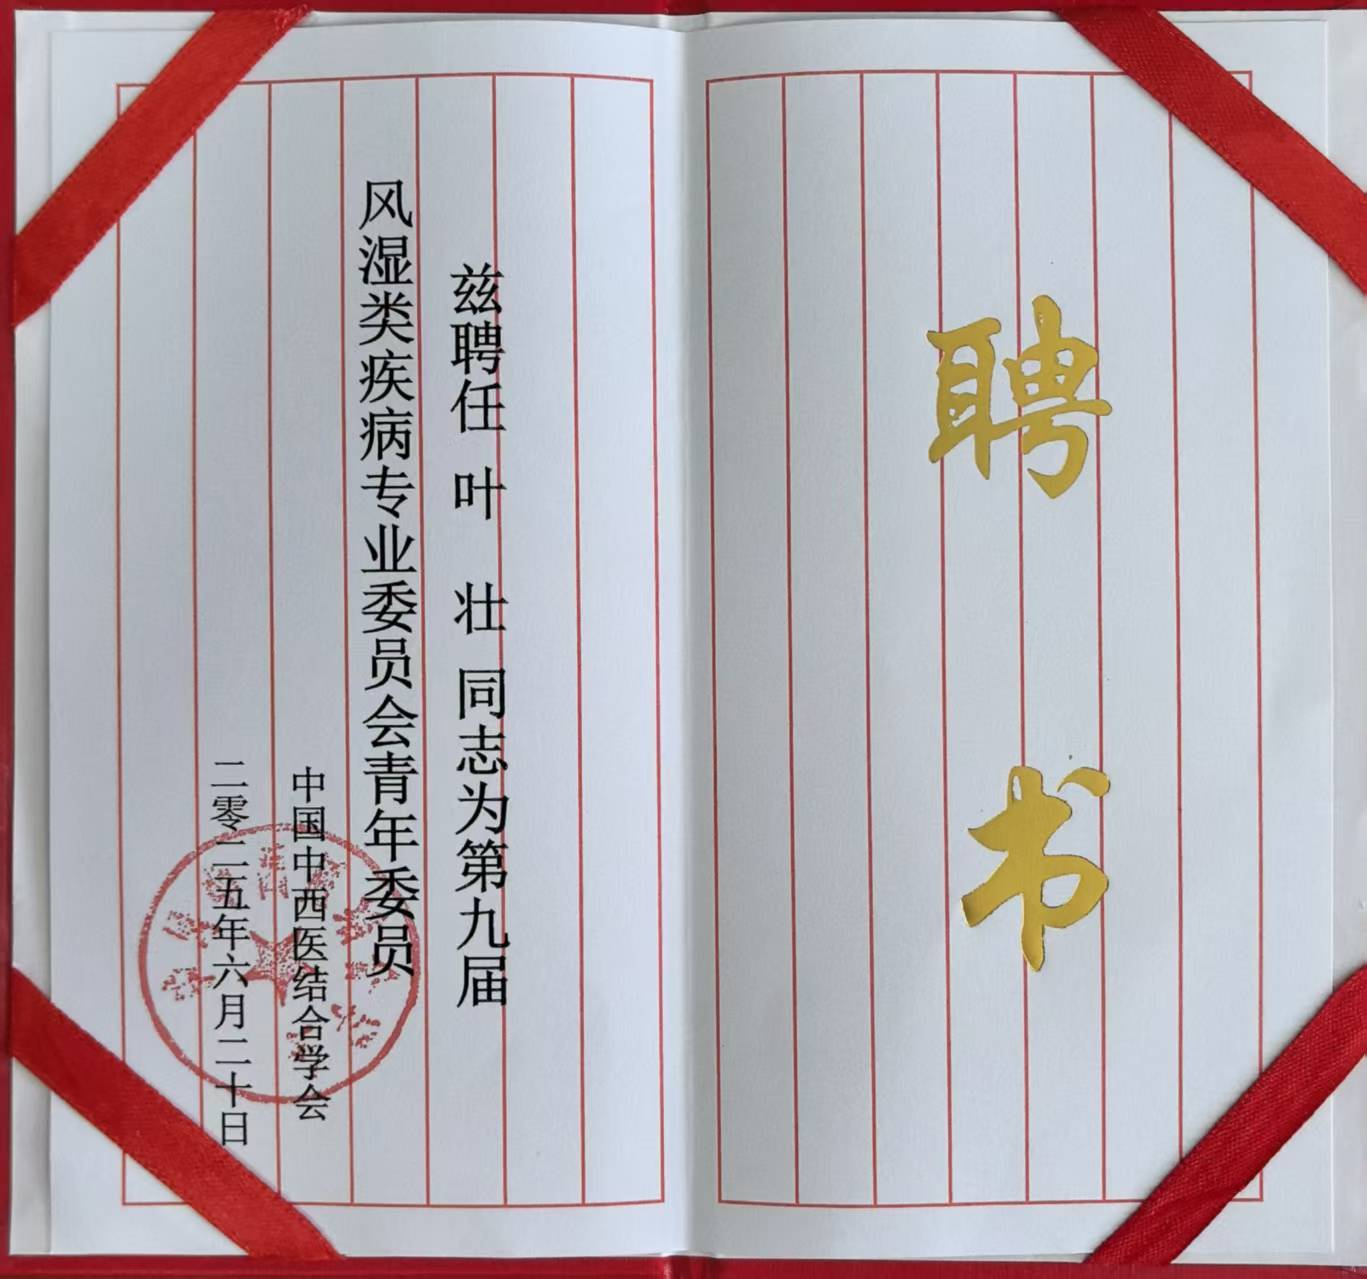 聘书
兹聘任 叶 壮 同志为第九届
风湿类疾病专业委员会青年委员
中国中西医结合学会
二零二五年六月二十日